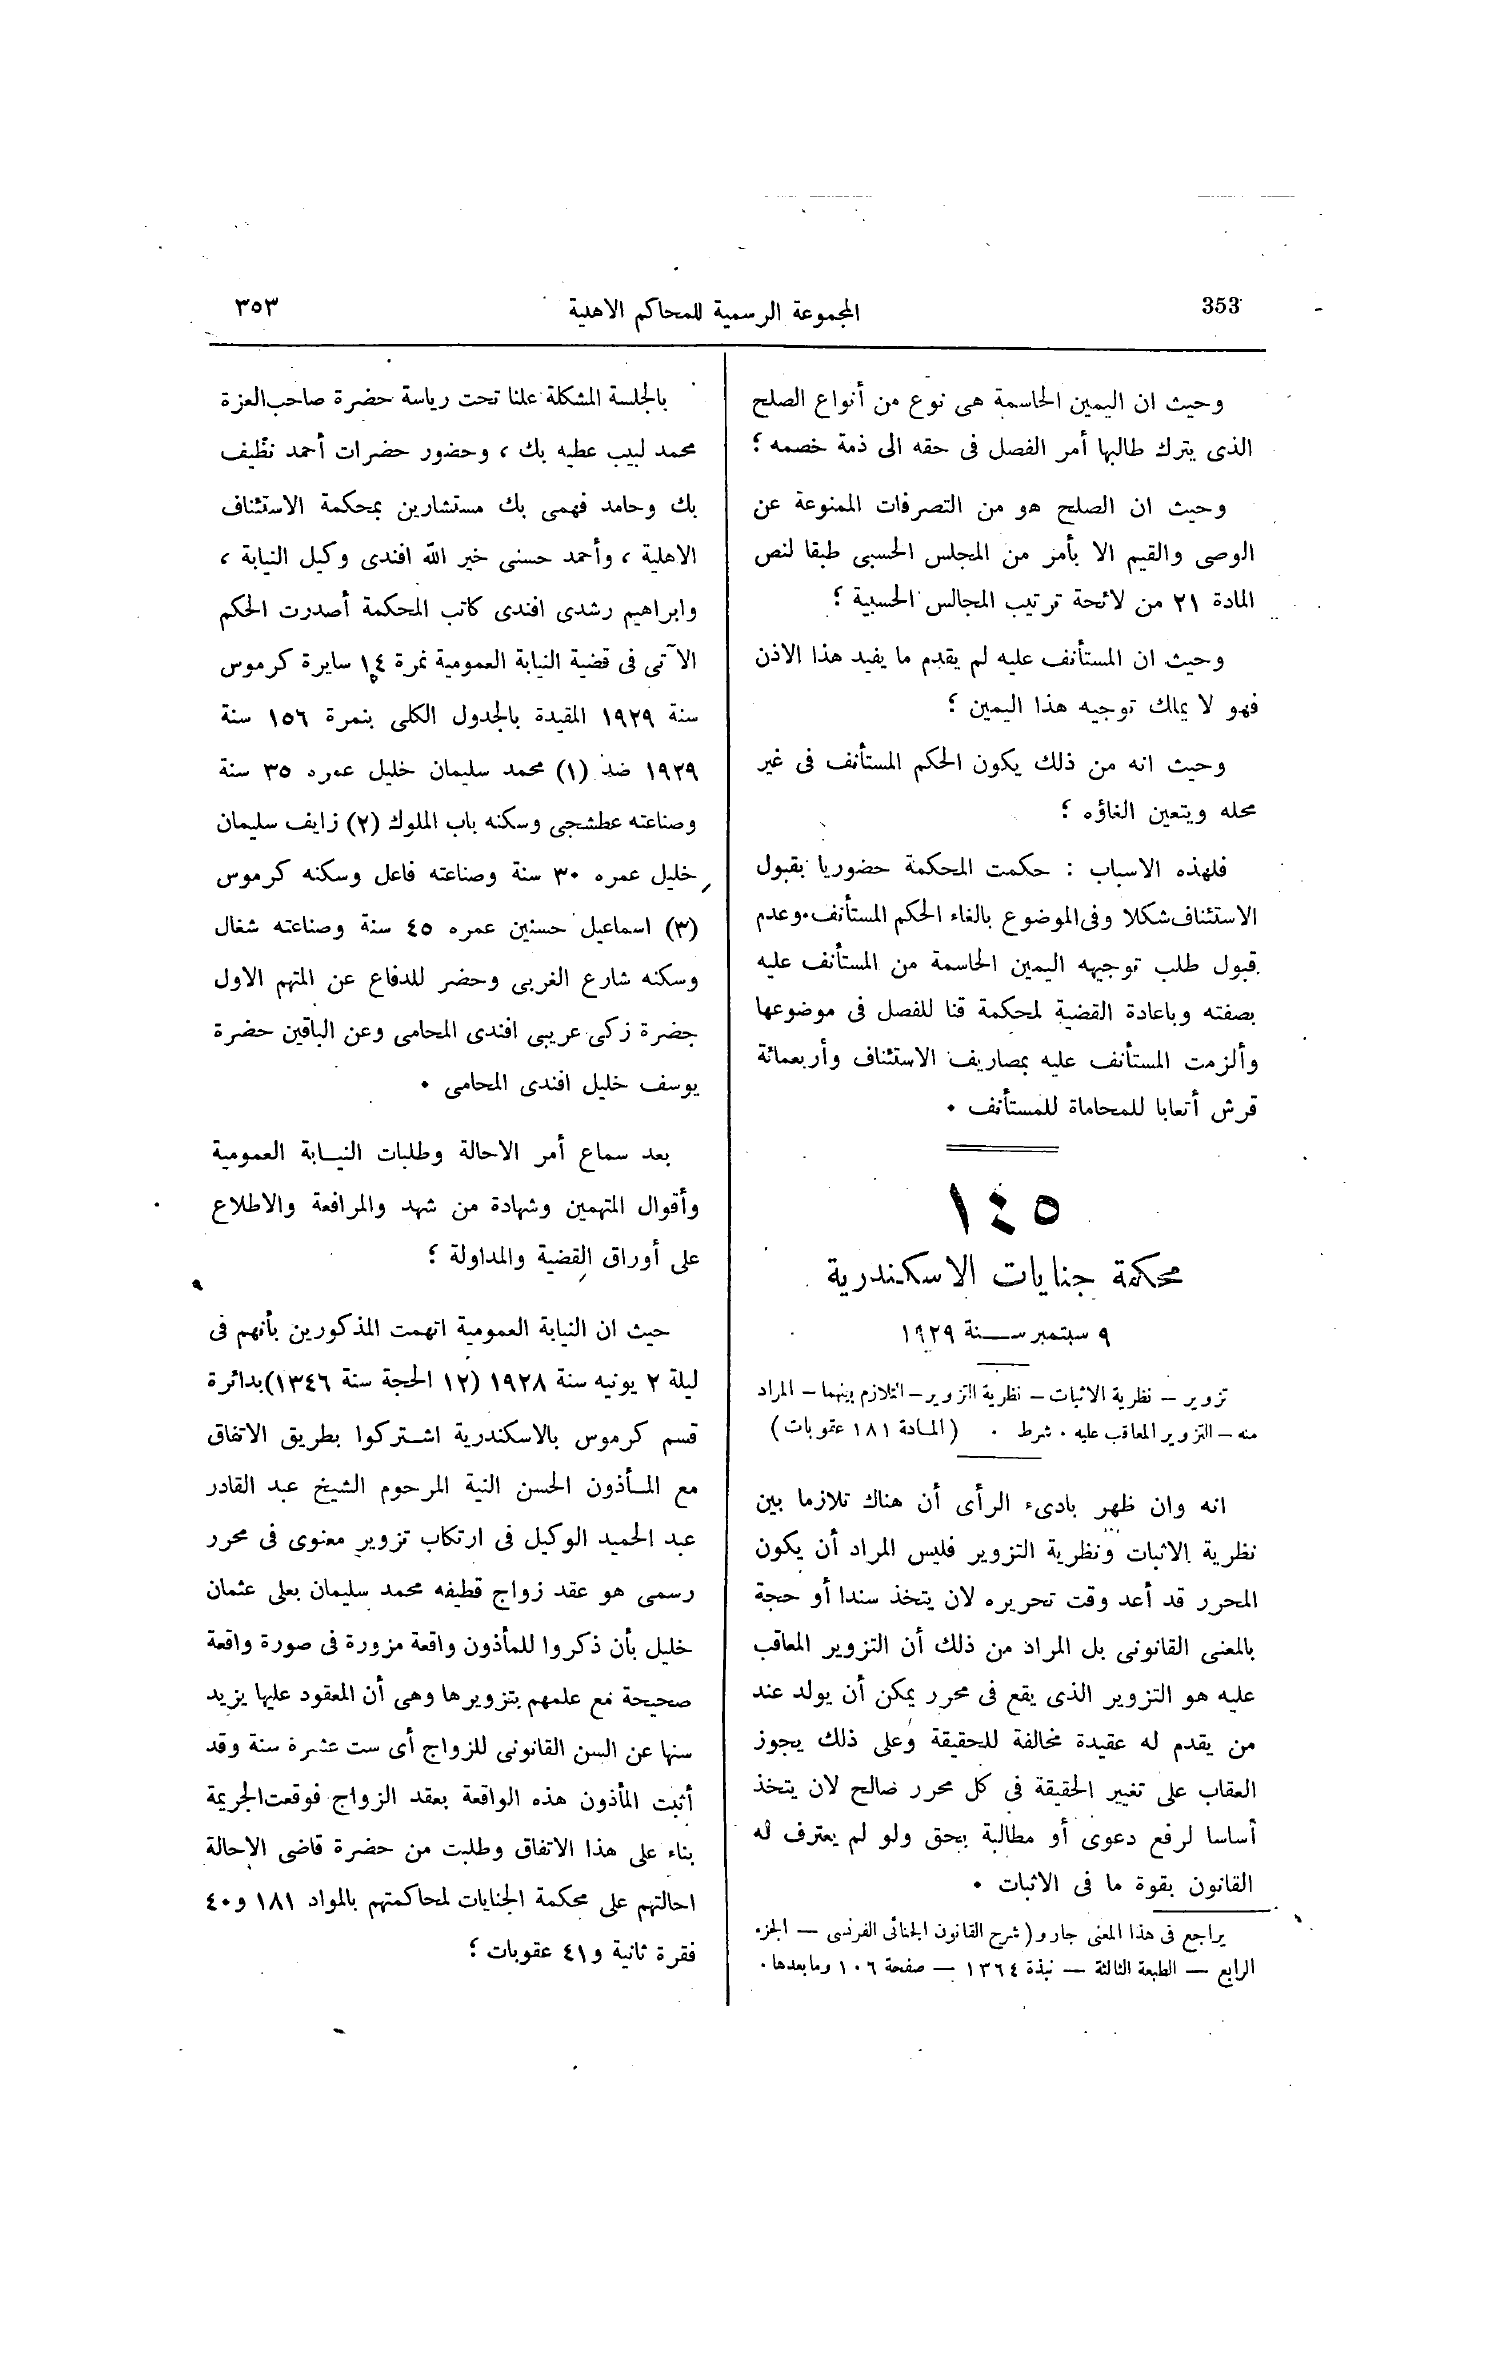 353
المجموعة الرسمية للمحاكم الاهلية
٣٥٣
وحيث ان اليمين الحاسمة هى نوع من أنواع الصلح
الذى يترك طالبها أمر الفصل فى حقه الى ذمة خصمه ؛
وحيث ان الصلح هو من التصرفات الممنوعة عن
الوصى والقيم الا بأمر من المجلس الحسبى طبقا لنص
المادة ٢١ من لائحة ترتيب المجالس الحسبية ؛
وحيث ان المستأنف عليه لم يقدم ما يفيد هذا الاذن
فهو لا يملك توجيه هذا اليمين ؛
وحيث انه من ذلك يكون الحكم المستأنف فى غير
محله ويتعين الغاؤه ؛
فلهذه الاسباب : حكمت المحكمة حضوريا بقبول
الاستئناف شكلا وفى الموضوع بالغاء الحكم المستأنف وعدم
قبول طلب توجيه اليمين الحاسمة من المستأنف عليه
بصفته وباعادة القضية لمحكمة قنا للفصل فى موضوعها
وألزمت المستأنف عليه بمصاريف الاستئناف وأربعمائة
قرش أتعابا للمحاماة للمستأنف ٠
١٤٥
محكمة جنايات الاسكندرية
٩ سبتمبر سنة ١٩٢٩
تزوير – نظرية الاثبات – نظرية التزوير – التلازم بينهما – المراد
منه – التزوير المعاقب عليه ٠ شرط ٠ (المادة ١٨١ عقوبات)
انه وان ظهر بادىء الرأى أن هناك تلازما بين
نظرية الاثبات ونظرية التزوير فليس المراد أن يكون
المحرر قد أعد وقت تحريره لان يتخذ سندا أو حجة
بالمعنى القانونى بل المراد من ذلك أن التزوير المعاقب
عليه هو التزوير الذى يقع فى محرر يمكن أن يولد عند
من يقدم له عقيدة مخالفة للحقيقة وعلى ذلك يجوز
العقاب على تغيير الحقيقة فى كل محرر صالح لان يتخذ
أساسا لرفع دعوى أو مطالبة بحق ولو لم يعترف له
القانون بقوة ما فى الاثبات ٠
يراجع فى هذا المعنى جارو (شرح القانون الجنائى الفرنسى — الجزء
الرابع — الطبعة الثالثة — نبذة ١٣٦٤ — صفحة ١٠٦ ومابعدها ٠
بالجلسة المشكلة علنا تحت رياسة حضرة صاحب العزة
محمد لبيب عطيه بك ، وحضور حضرات أحمد نظيف
بك وحامد فهمى بك مستشارين بمحكمة الاستئناف
الاهلية ، وأحمد حسنى خير الله افندى وكيل النيابة ،
وابراهيم رشدى افندى كاتب المحكمة أصدرت الحكم
الآتى فى قضية النيابة العمومية نمرة ١٤ سايرة كرموس
سنة ١٩٢٩ المقيدة بالجدول الكلى بنمرة ١٥٦ سنة
١٩٢٩ ضد (١) محمد سليمان خليل عمره ٣٥ سنة
وصناعته عطشجى وسكنه باب الملوك (٢) زايف سليمان
خليل عمره ٣٠ سنة وصناعته فاعل وسكنه كرموس
(٣) اسماعيل حسنين عمره ٤٥ سنة وصناعته شغال
وسكنه شارع الغربى وحضر للدفاع عن المتهم الاول
حضرة زكى عريبى افندى المحامى وعن الباقين حضرة
يوسف خليل افندى المحامى ٠
بعد سماع أمر الاحالة وطلبات النيابة العمومية
وأقوال المتهمين وشهادة من شهد والمرافعة والاطلاع
على أوراق القضية والمداولة ؛
حيث ان النيابة العمومية اتهمت المذكورين بأنهم فى
ليلة ٢ يونيه سنة ١٩٢٨ (١٢ الحجة سنة ١٣٤٦) بدائرة
قسم كرموس بالاسكندرية اشتركوا بطريق الاتفاق
مع المأذون الحسن النية المرحوم الشيخ عبد القادر
عبد الحميد الوكيل فى ارتكاب تزوير معنوى فى محرر
رسمى هو عقد زواج قطيفه محمد سليمان بعلى عثمان
خليل بأن ذكروا للمأذون واقعة مزورة فى صورة واقعة
صحيحة مع علمهم بتزويرها وهى أن المعقود عليها يزيد
سنها عن السن القانونى للزواج أى ست عشرة سنة وقد
أثبت المأذون هذه الواقعة بعقد الزواج فوقعت الجريمة
بناء على هذا الاتفاق وطلبت من حضرة قاضى الاحالة
احالتهم على محكمة الجنايات لمحاكمتهم بالمواد ١٨١ و٤٠
فقرة ثانية و٤١ عقوبات ؛